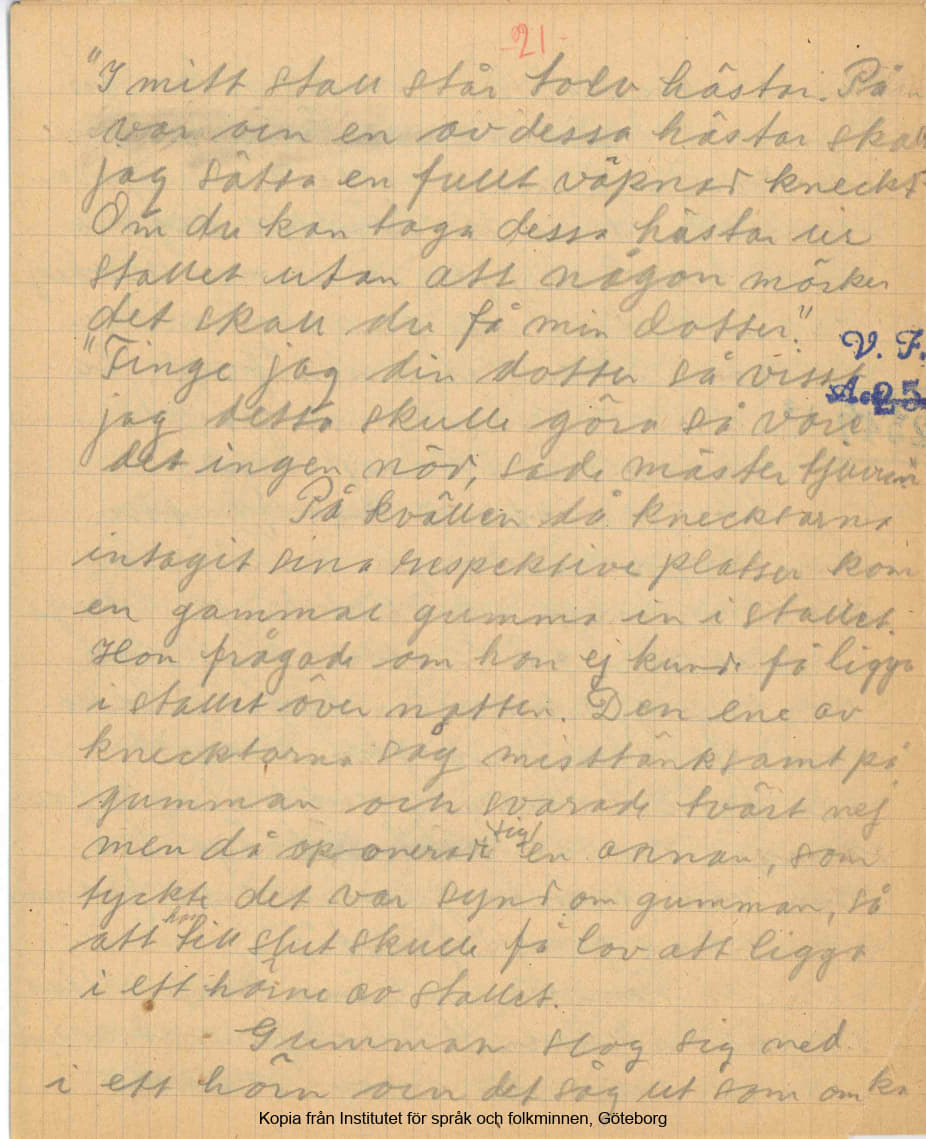 -21-
"I mitt stall står tolv hästar. På
var och en av dessa hästar skall
jag sätta en fullt väpnad kneckt
Om du kan taga dessa hästar ur
stallet utan att någon märker
det skall du få min dotter."
V. F.
"Finge jag din dotter så visst
jag detta skulle göra så vore
det ingen nöd, sade mäster tjuven
På kvällen då knecktarna
intagit sina respektive platser kom
en gammal gumma in i stallet.
Hon frågade om hon ej kunde få ligga
i stallet över natten. Den ene av
knecktarna såg misstänksamt på
gumman och svarade tvärt nej
men då oponerade sig en annan, som
tyckte det var synd om gumman, så
att hon till slut skulle få lov att ligga
i ett hörne av stallet.
Gumman slog sig ned
i ett hörn och det såg ut som om
Kopia från Institutet för språk och folkminnen, Göteborg